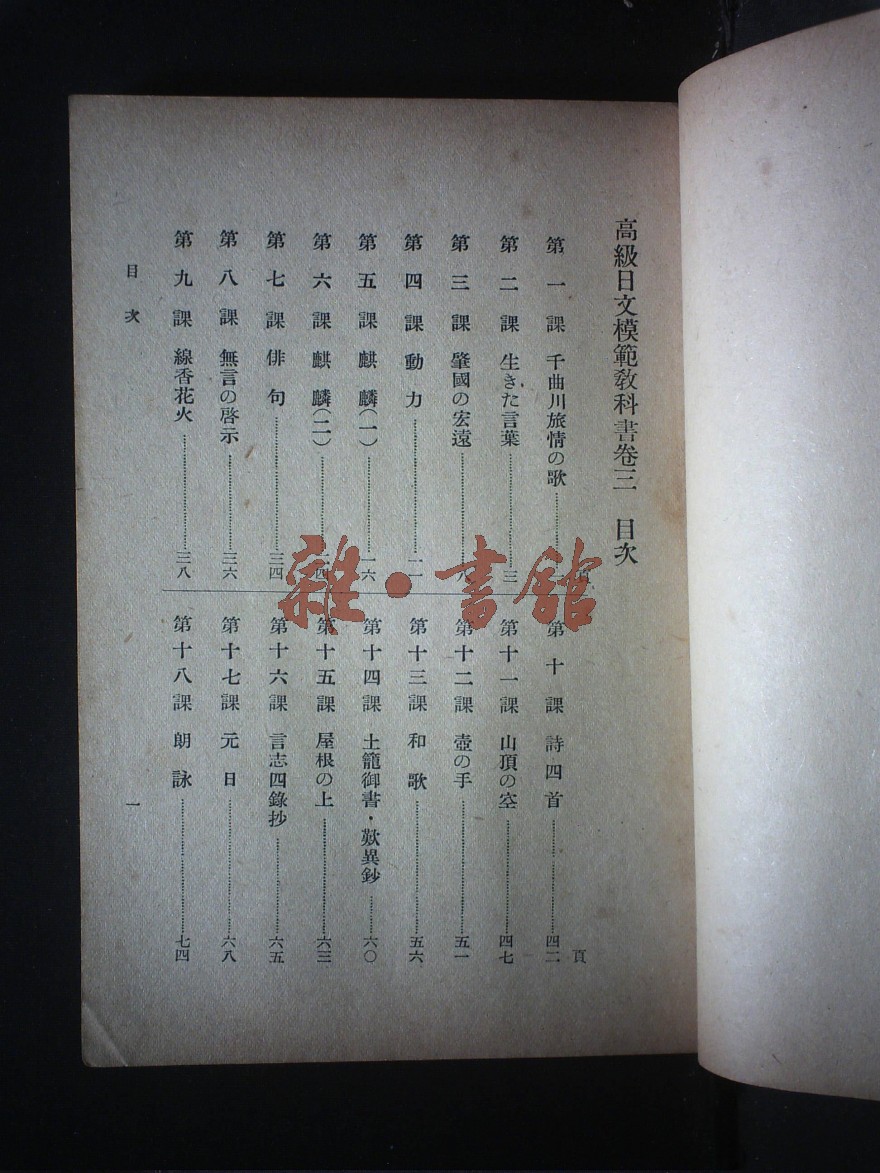 高級日文模範敎科書卷三　目次
頁
第一課　千曲川旅情の歌
第二課　生きた言葉……三
第三課　肇國の宏遠……八
第四課　動力……一一
第五課　麒麟(一)……一六
第六課　麒麟(二)……二四
第七課　俳句……三四
第八課　無言の啓示……三六
第九課　線香花火……三八
頁
第十課　詩四首……四二
第十一課　山頂の空……四七
第十二課　壺の手……五一
第十三課　和歌……五六
第十四課　土籠御書・歎異鈔……六〇
第十五課　屋根の上……六三
第十六課　言志四錄抄……六五
第十七課　元日……六八
第十八課　朗詠……七四
目次
一
雜・書館